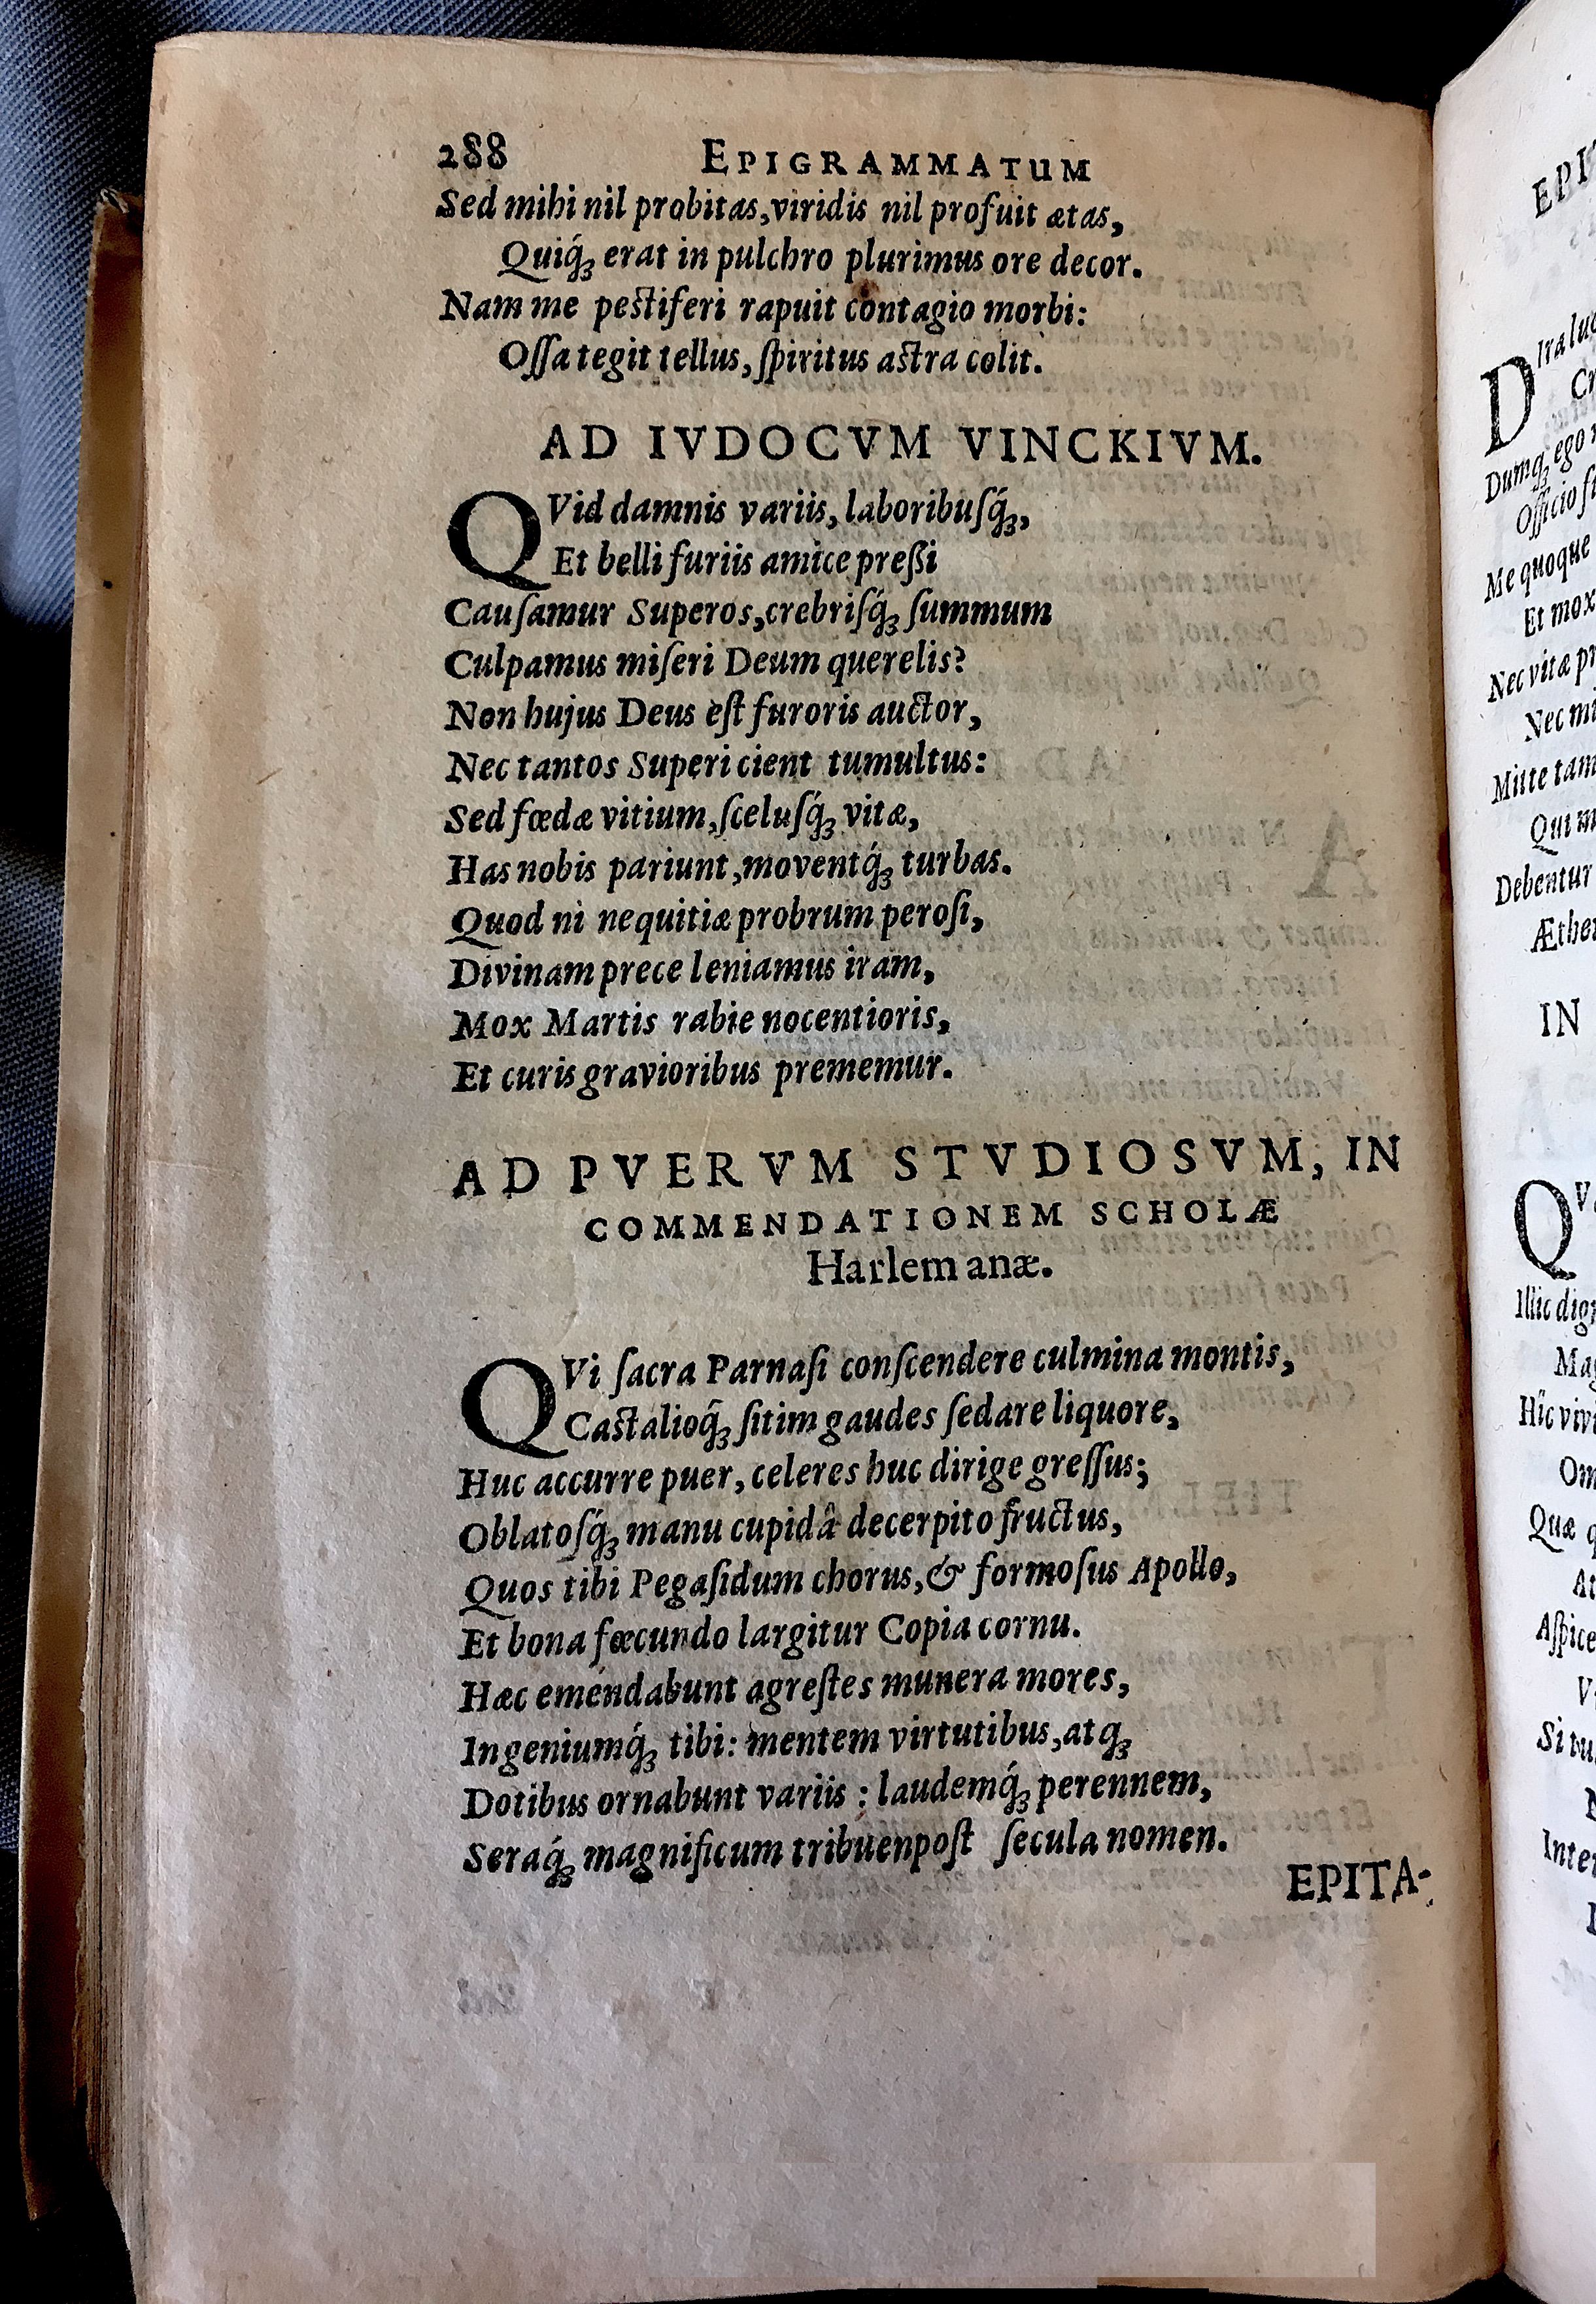 288 EPIGRAMMATUM
Sed mihi nil probitas, viridis nil profuit ætas,
Quiq́ꝫ erat in pulchro plurimus ore decor.
Nam me peſtiferi rapuit contagio morbi:
Oſſa tegit tellus, ſpiritus aſtra colit.
AD IVDOCVM VINCKIVM.
QVid damnis variis, laboribuſq́ꝫ,
Et belli furiis amice preßi
Cauſamur Superos, crebriſq́ꝫ ſummum
Culpamus miſeri Deum querelis?
Non hujus Deus eſt furoris auctor,
Nec tantos Superi cient tumultus:
Sed fœdæ vitium, ſceluſq́ꝫ vitæ,
Has nobis pariunt, moventq́ꝫ turbas.
Quod ni nequitiæ probrum peroſi,
Divinam prece leniamus iram,
Mox Martis rabie nocentioris,
Et curis gravioribus prememur.
AD PVERVM STVDIOSVM, IN
COMMENDATIONEM SCHOLÆ
Harlemanæ.
QVi ſacra Parnaſi conſcendere culmina montis,
Caſtalioq́ꝫ ſitim gaudes ſedare liquore,
Huc accurre puer, celeres huc dirige greſſus;
Oblatoſq́ꝫ manu cupidâ decerpito fructus,
Quos tibi Pegaſidum chorus, & formoſus Apollo,
Et bona fœcundo largitur Copia cornu.
Hæc eméndabunt agreſtes munera mores,
Ingeniumq́ꝫ tibi: mentem virtutibus, atqꝫ
Dotibus ornabunt variis : laudemq́ꝫ perennem,
Seraq́ꝫ magnificum tribuenpoſt ſecula nomen.
EPITA-
D
Dumqꝫ ego
Me quoque
Et mox
Nec vitæ
Debentur
IN
Q